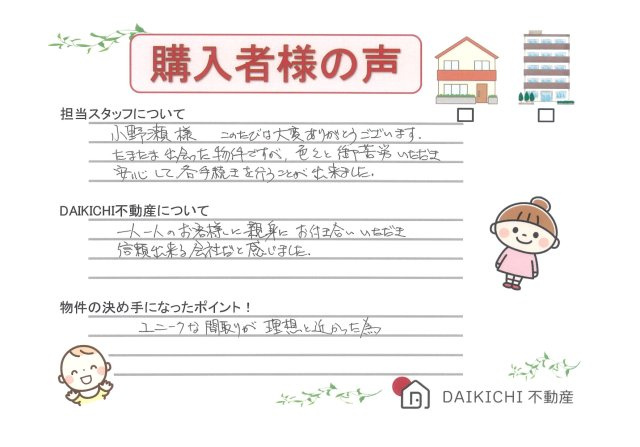 購入者様の声
担当スタッフについて
小野瀬様 このたびは大変ありがとうございます.
たまたま出会った物件ですが、色々と御苦労いただき
安心して各手続きを行うことが出来ました.
DAIKICHI不動産について
一人一人のお客様に親身にお付き合いいただき
信頼出来る会社だと感じました.
物件の決め手になったポイント！
ユニークな間取りが理想と近かった為
DAIKICHI 不動産